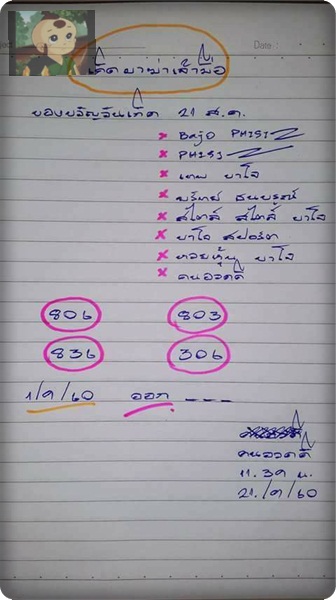 Date :
เด็ดผาฆ่าเจ้ามือ
ของขวัญวันเกิด 21 ส.ค.
× Bajo PHISI
× PHISI
× เทพ บาโจ
× ธนบูรณ์
× สไตล์ สไตล์ บาโจ
× บาโจ สปอร์ต
× หวยหุ้น บาโจ
× คนอวดดี
806 803
836 306
1/9/60 ออก _ _ _
คนอวดดี
11.39 น.
21/9/60